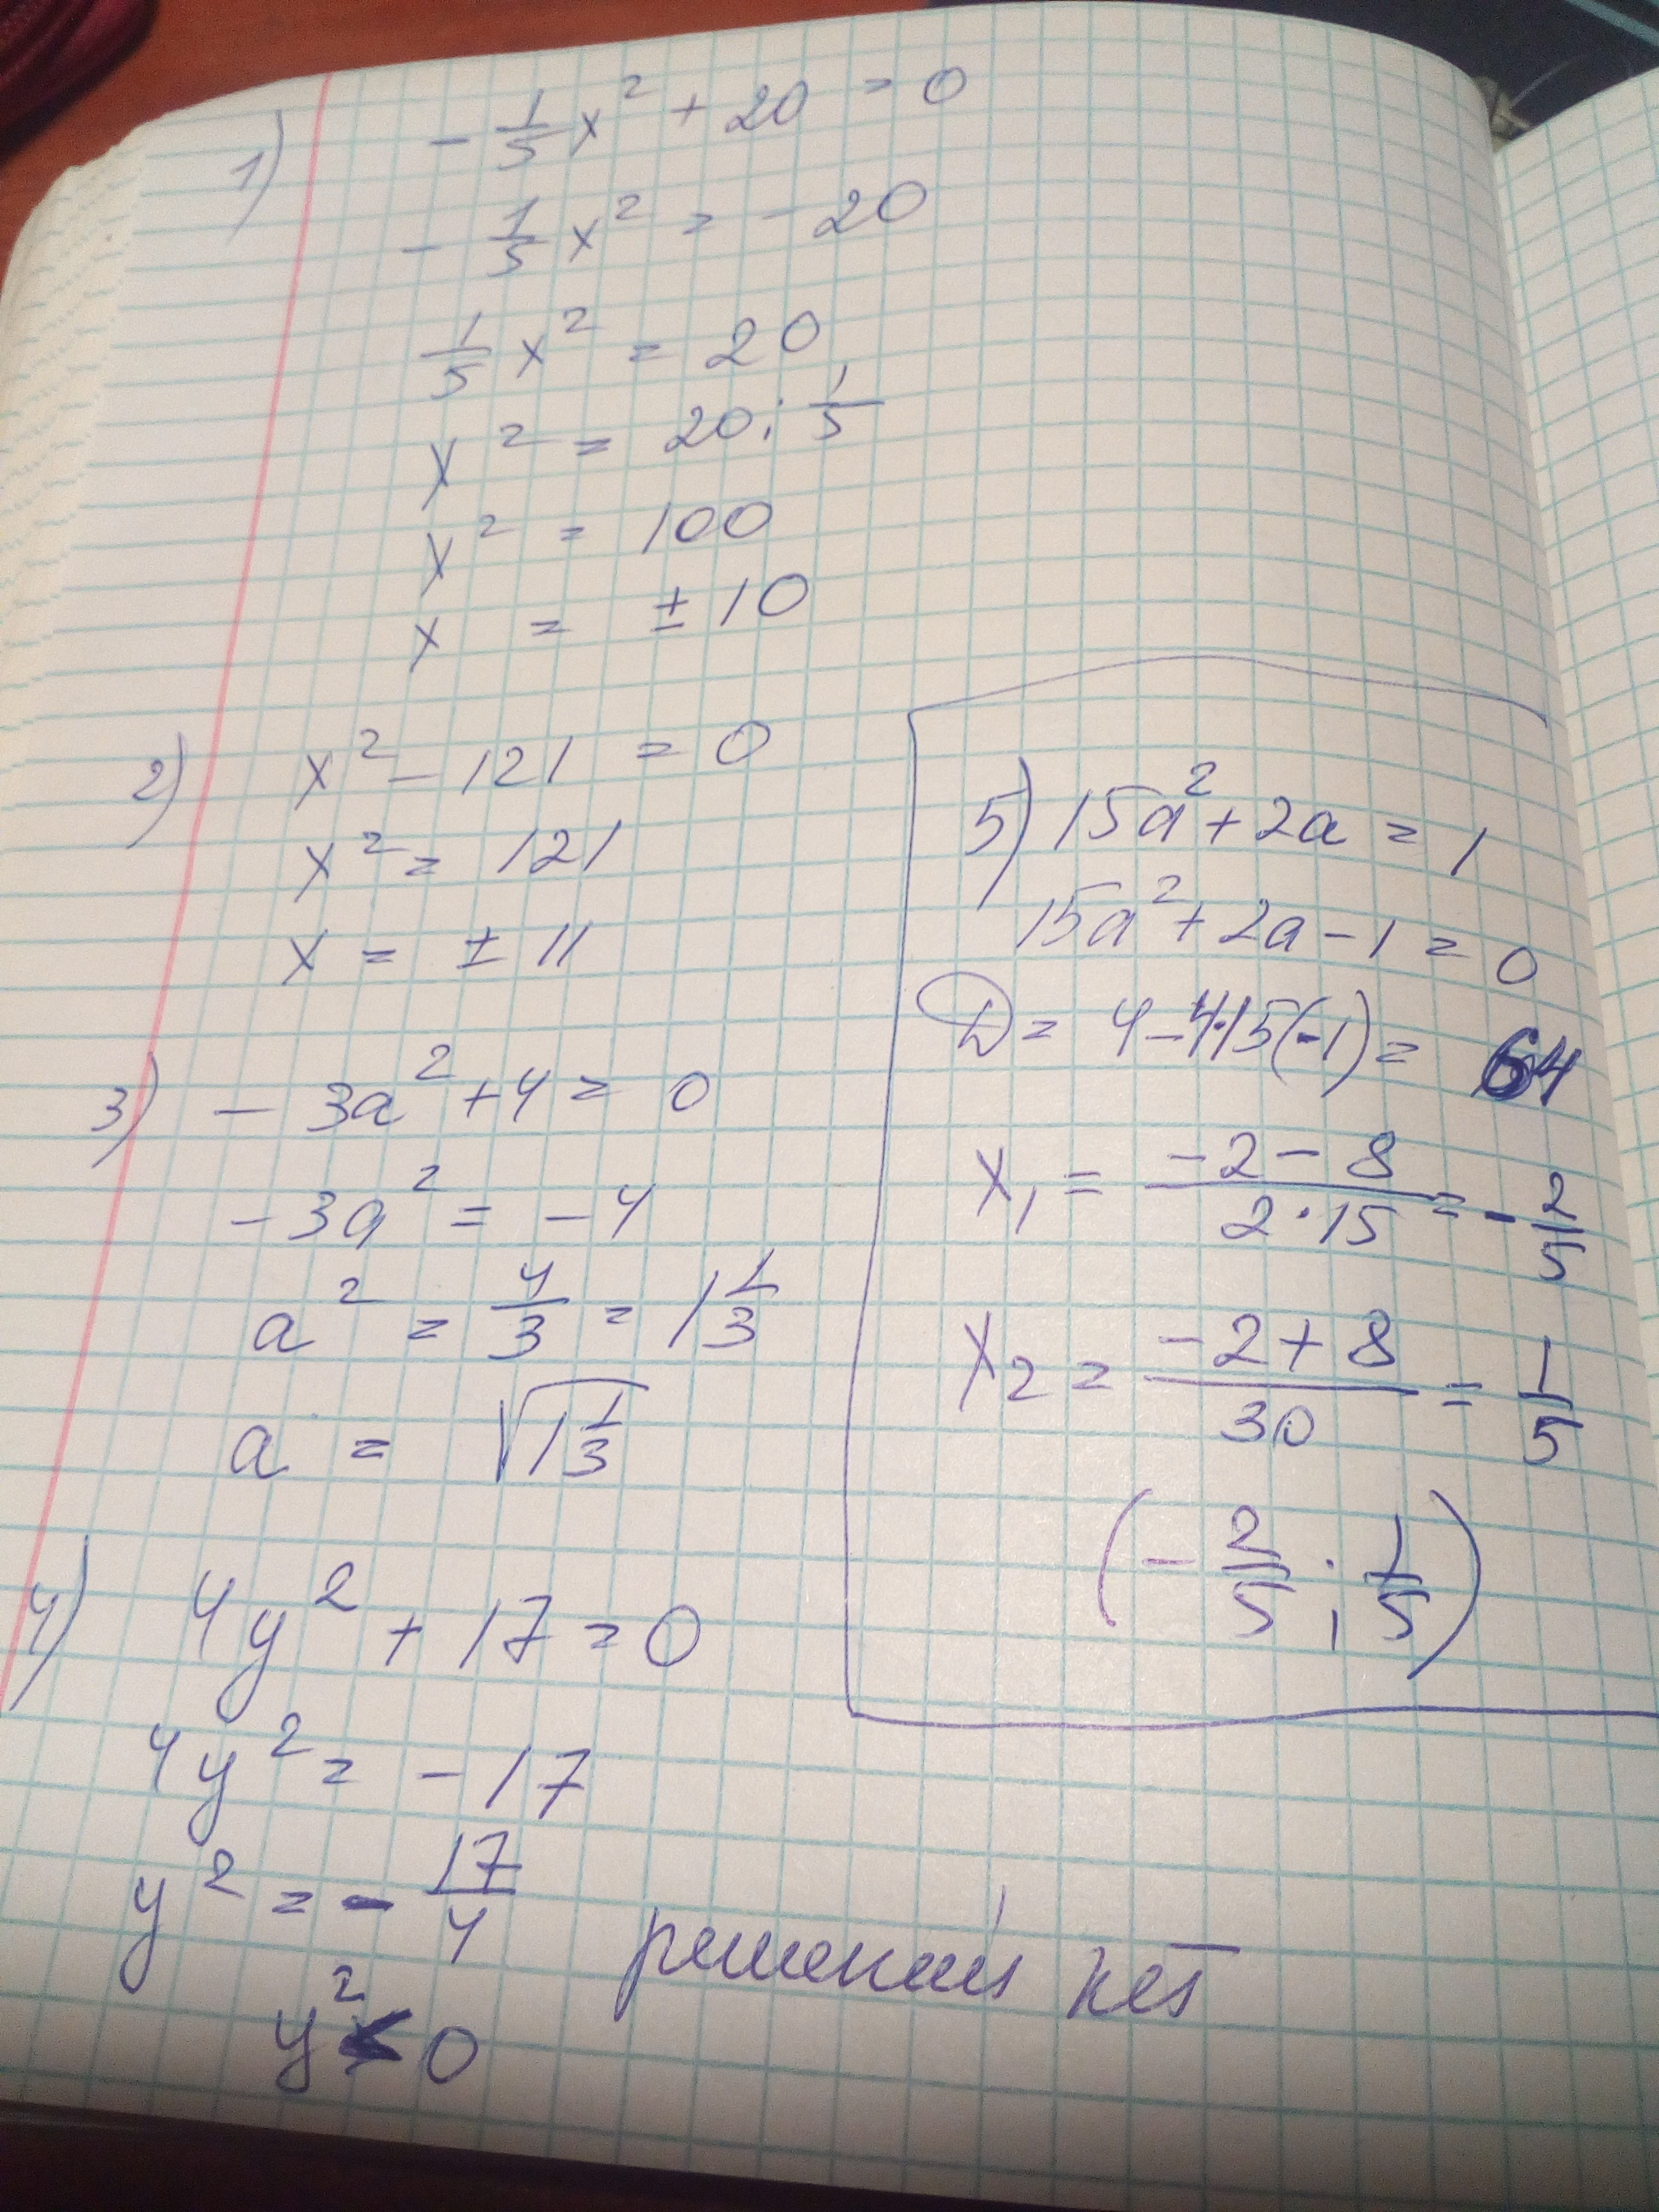 1) - 1/5 x² + 20 = 0
- 1/5 x² = - 20
1/5 x² = 20
x² = 20 : 1/5
x² = 100
x = ± 10
2) x² - 121 = 0
x² = 121
x = ± 11
3) - 3a² + 4 = 0
- 3a² = - 4
a² = 4/3 = 1 1/3
a = √(1 1/3)
4) 4y² + 17 = 0
4y² = - 17
y² = - 17/4
y² < 0 решений нет
5) 15a² + 2a = 1
15a² + 2a - 1 = 0
D = 4 - 4·15(-1) = 64
x₁ = (-2 - 8)/(2·15) = - 2/5
x₂ = (-2 + 8)/30 = 1/5
(- 2/5 ; 1/5)